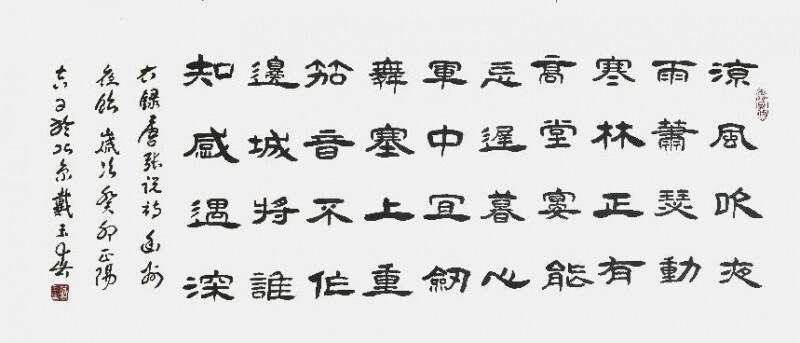 涼風吹夜
雨蕭瑟動
寒林正有
高堂宴能
忘遲暮心
軍中宜劒
舞塞上重
笳音不作
邊城將誰
知感遇深
右録唐張説詩幽州
夜飲歲次癸卯正陽
吉日於北京戴玉